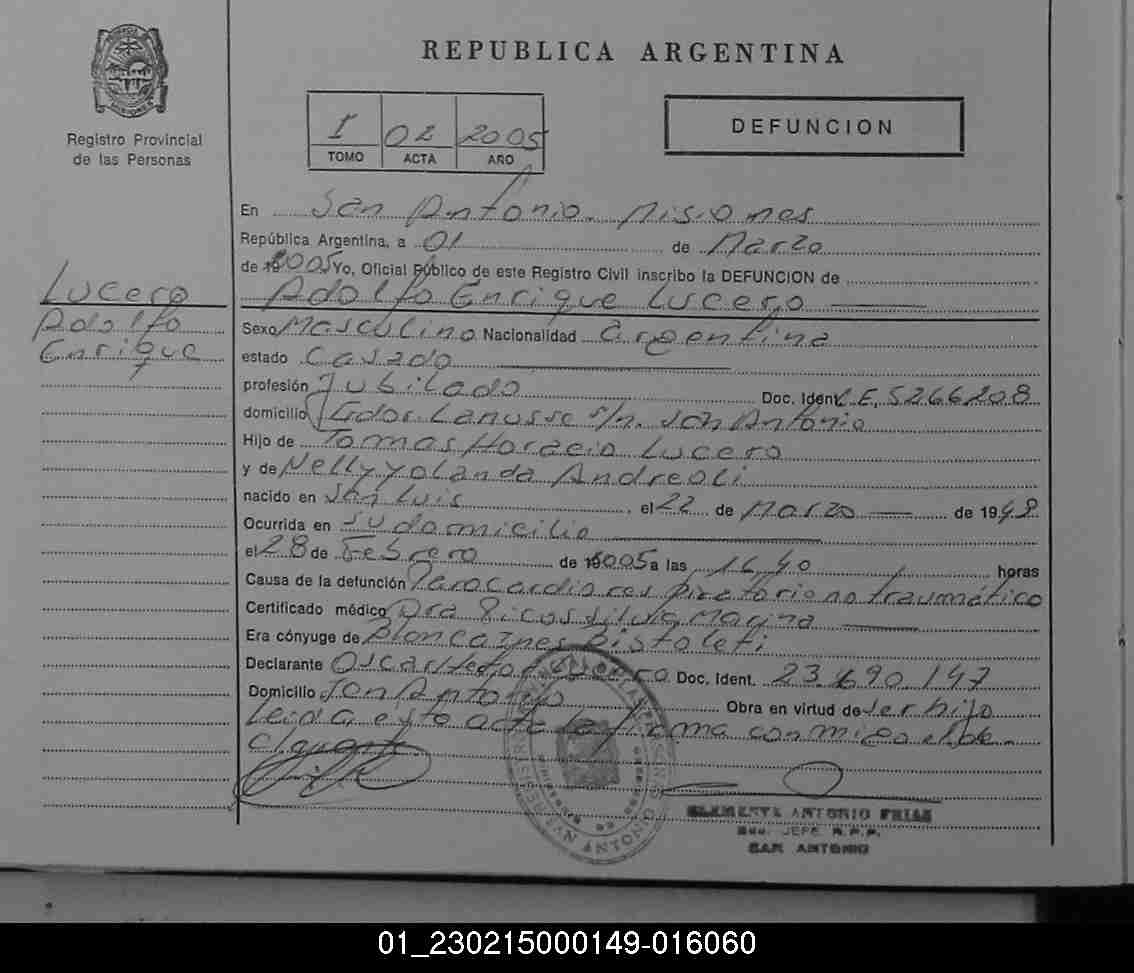 REPUBLICA ARGENTINA
Registro Provincial
de las Personas
I 02 2005
TOMO ACTA AÑO
DEFUNCION
En San Antonio. Misiones
República Argentina, a 01 de Marzo
de 2005 Yo, Oficial Público de este Registro Civil inscribo la DEFUNCION de
Adolfo Enrique Lucero
Lucero
Adolfo
Enrique
Sexo Masculino Nacionalidad argentina
estado Casado
profesión Jubilado Doc. Ident. L.E. 5266208
domicilio Gdor. Lanusse s/n. San Antonio
Hijo de Tomas Horacio Lucero
y de Nelly Yolanda Andreoli
nacido en San Luis, el 22 de Marzo de 1948
Ocurrida en su domicilio
el 28 de Febrero de 2005 a las 16,40 horas
Causa de la defunción Paro cardio respiratorio no traumático
Certificado médico Dra Ricos Silvia
Era cónyuge de Blanca Ines Pistoleti
Declarante Oscar Lucero Doc. Ident. 23.690.147
Domicilio San Antonio Obra en virtud de ser hijo
Leida esta acta la firma conmigo el de
clarante
CLEMENTE ANTONIO FRIAS
JEFE R.P.P.
SAN ANTONIO
01_230215000149-016060